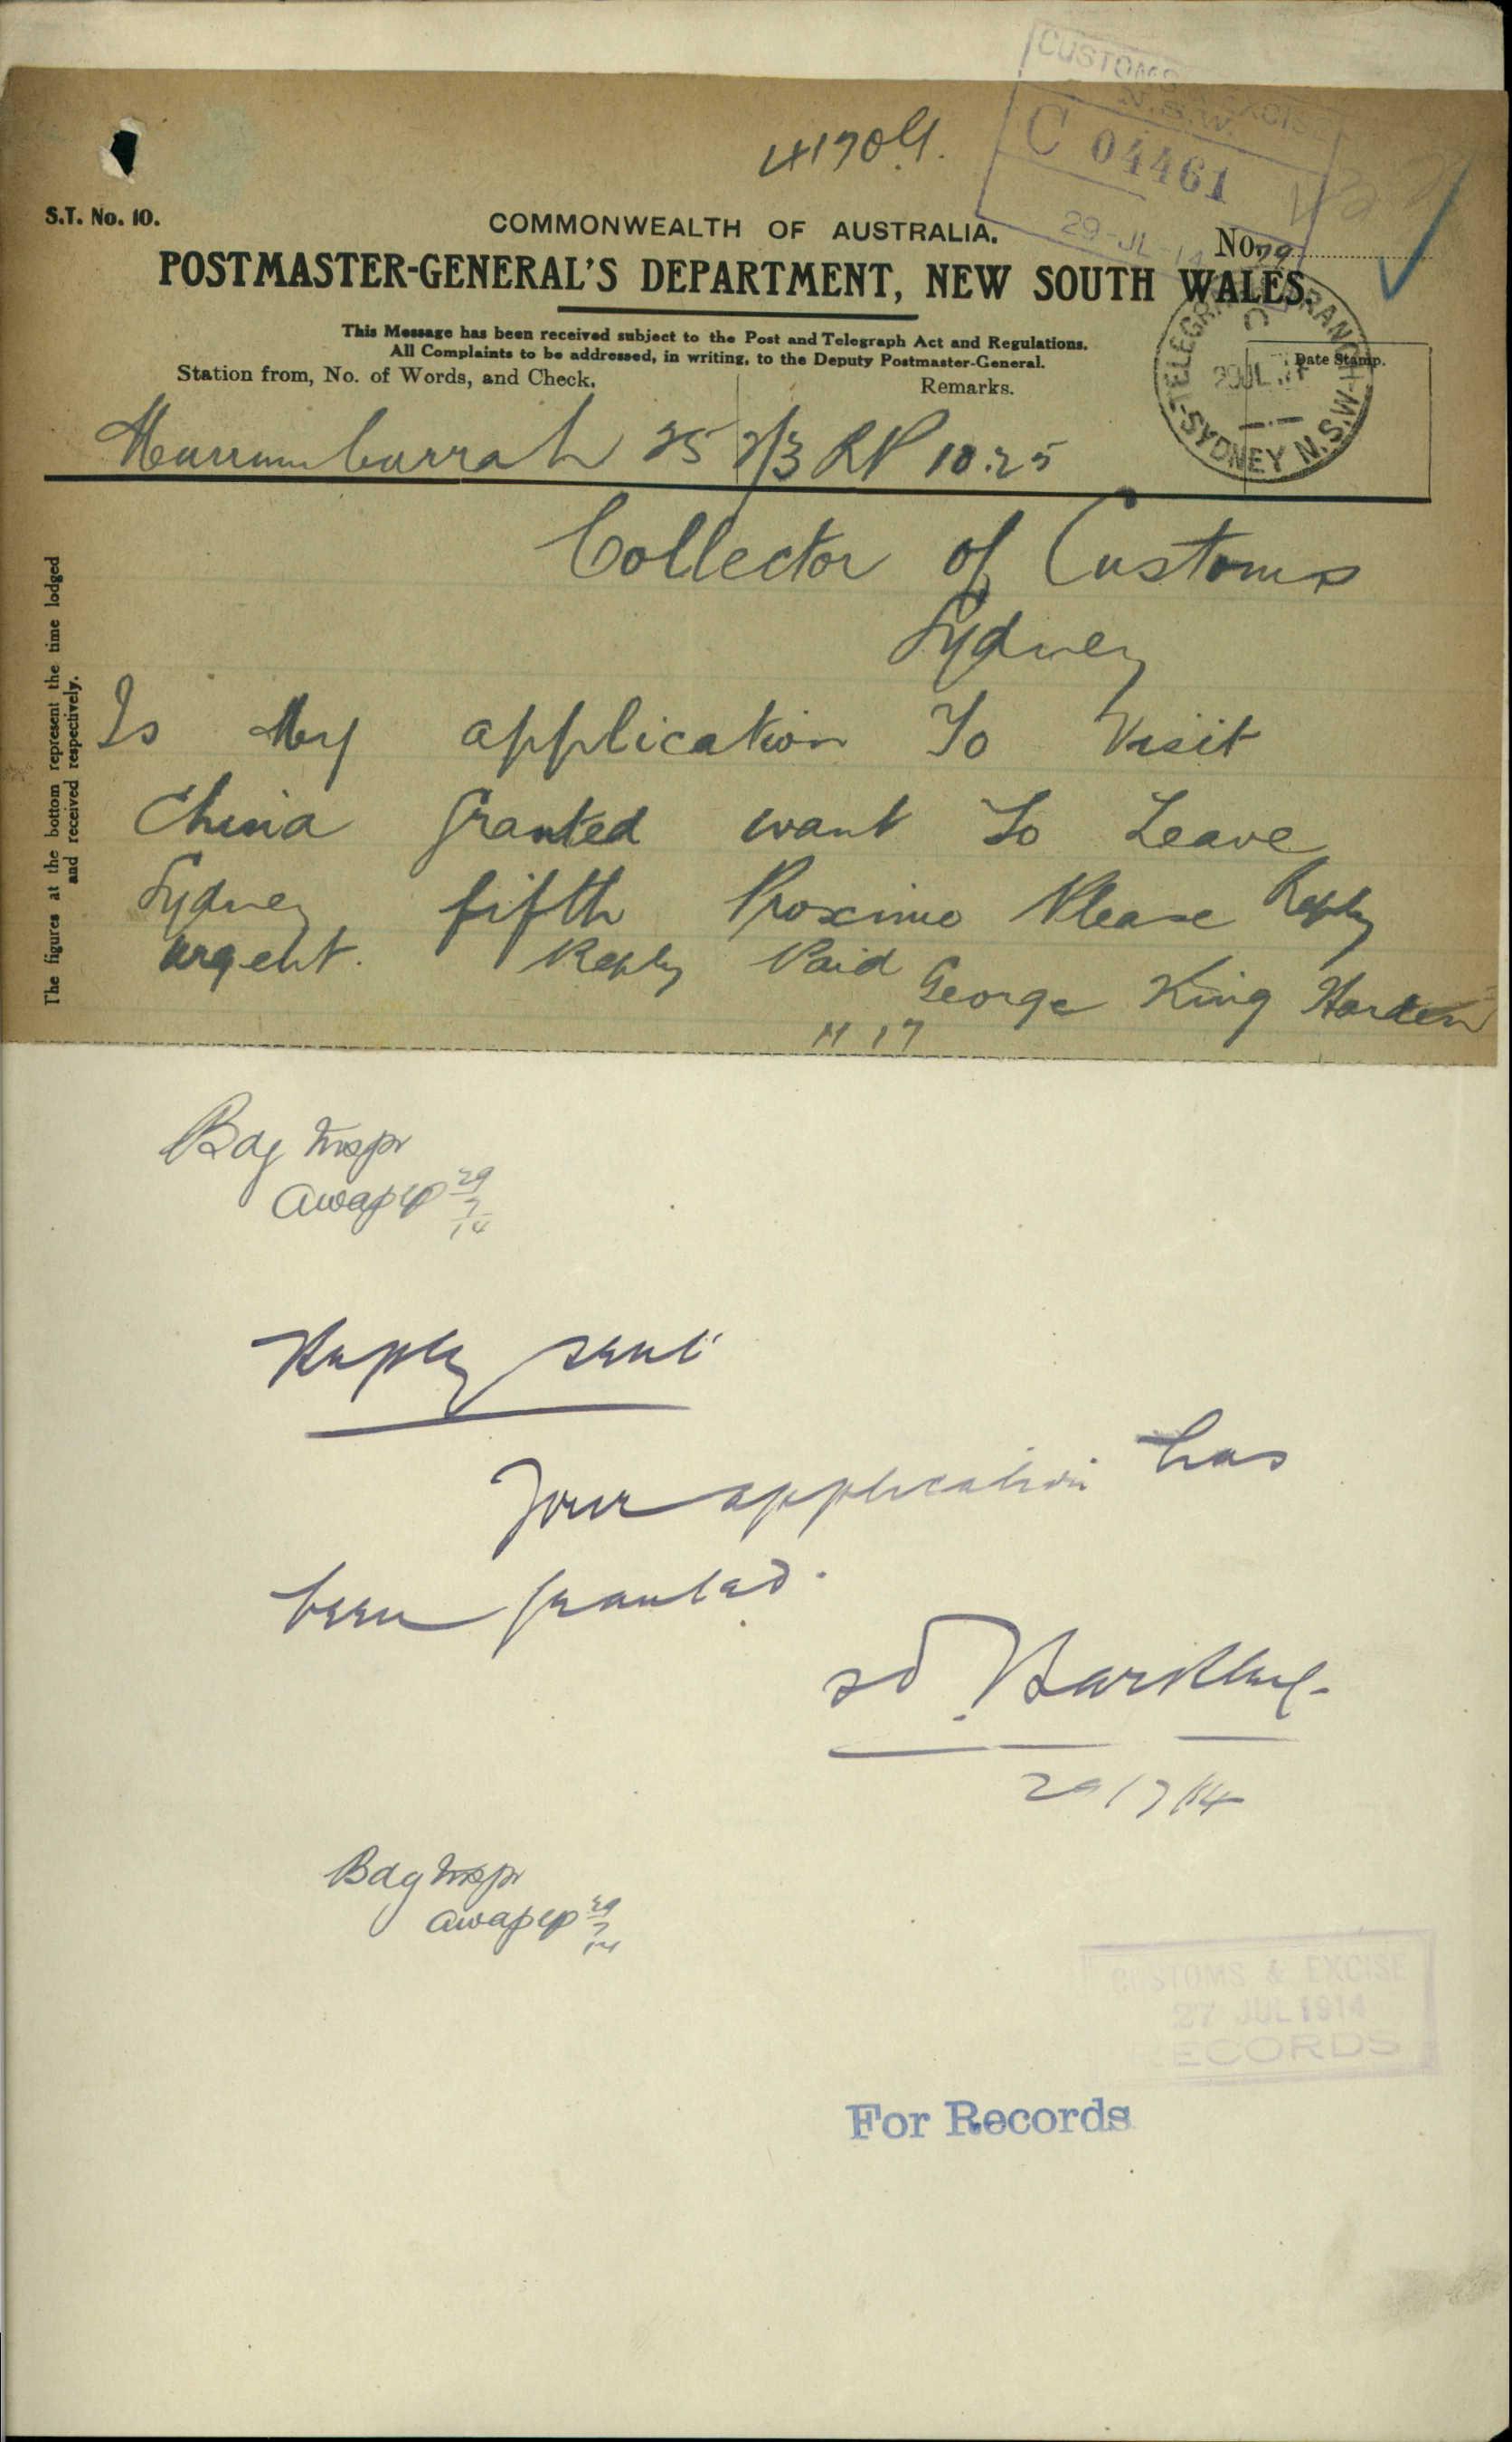 CUSTOMS & EXCISE
N.S.W.
C 04461
29-JL-14
S.T. No. 10.
COMMONWEALTH OF AUSTRALIA.
No. 79
POSTMASTER-GENERAL'S DEPARTMENT, NEW SOUTH WALES.
This Message has been received subject to the Post and Telegraph Act and Regulations.
All Complaints to be addressed, in writing, to the Deputy Postmaster-General.
Station from, No. of Words, and Check.
Remarks.
Date Stamp.
TELEGRAPH BRANCH
SYDNEY N.S.W.
Murrumburrah 25 2/3 RP 10.25
Collector of Customs
Sydney
Is My application To Visit
China Granted want To Leave
Sydney fifth Proximo Please Reply
urgent. Reply Paid
George King Harden
11 17
The figures at the bottom represent the time lodged
and received respectively.
Bdg Inspr
29/7/14
Reply sent
Your application has
been granted.
sd
29/7/14
Bdg Inspr
29/7/14
CUSTOMS & EXCISE
27 JUL 1914
RECORDS
For Records